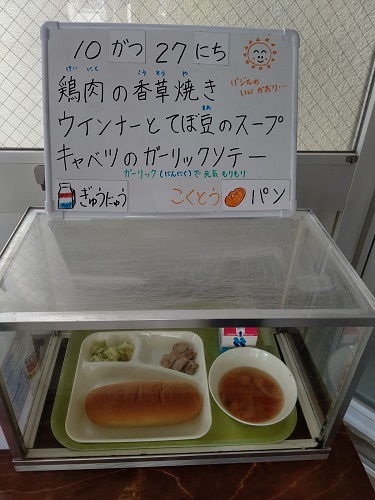 10がつ27にち
けいにく こうそうや
鶏肉の香草焼き
バジルの
いいかおり…
まめ
ウインナーとてぼ豆のスープ
キャベツのガーリックソテー
ガーリック(にんにく)で元気もりもり
ぎゅうにゅう こくとうパン